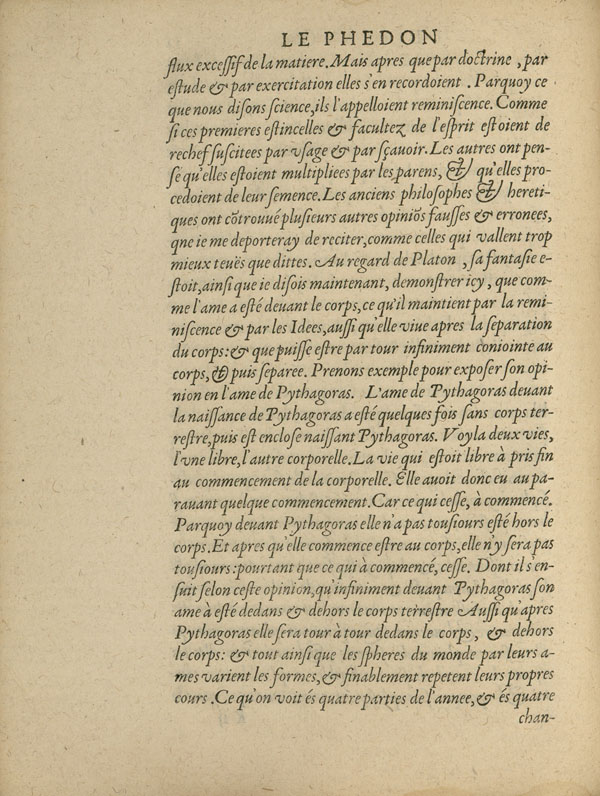 LE PHEDON
flux excessif de la matiere. Mais apres que par doctrine, par
estude & par exercitation elles s'en recordoient. Parquoy ce
que nous disons science, ils l'appelloient reminiscence. Comme
si ces premieres estincelles & facultez de l'esprit estoient de
rechef suscitees par vsage & par sçauoir. Les autres ont pen-
sé qu'elles estoient multipliees par les parens, & qu'elles pro-
cedoient de leur semence. Les anciens philosophes & hereti-
ques ont cõtrouué plusieurs autres opiniõs fausses & erronees,
qne ie me deporteray de reciter, comme celles qui vallent trop
mieux teuës que dittes. Au regard de Platon, sa fantasie e-
stoit, ainsi que ie disois maintenant, demonstrer icy, que com-
me l'ame a esté deuant le corps, ce qu'il maintient par la remi-
niscence & par les Idees, aussi qu'elle viue apres la separation
du corps: & que puisse estre par tour infiniment coniointe au
corps, & puis separee. Prenons exemple pour exposer son opi-
nion en l'ame de Pythagoras. L'ame de Pythagoras deuant
la naissance de Pythagoras a esté quelques fois sans corps ter-
restre, puis est enclose naissant Pythagoras. Voyla deux vies,
l'vne libre, l'autre corporelle. La vie qui estoit libre à pris fin
au commencement de la corporelle. Elle auoit donc eu au pa-
rauant quelque commencement. Car ce qui cesse, à commencé.
Parquoy deuant Pythagoras elle n'a pas tousiours esté hors le
corps. Et apres qu'elle commence estre au corps, elle n'y sera pas
tousiours: pourtant que ce qui à commencé, cesse. Dont il s'en-
suit selon ceste opinion, qu'infiniment deuant Pythagoras son
ame à esté dedans & dehors le corps terrestre Aussi qu'apres
Pythagoras elle sera tour à tour dedans le corps, & dehors
le corps: & tout ainsi que les spheres du monde par leurs a-
mes varient les formes, & finablement repetent leurs propres
cours. Ce qu'on voit és quatre parties de l'annee, & és quatre
chan-